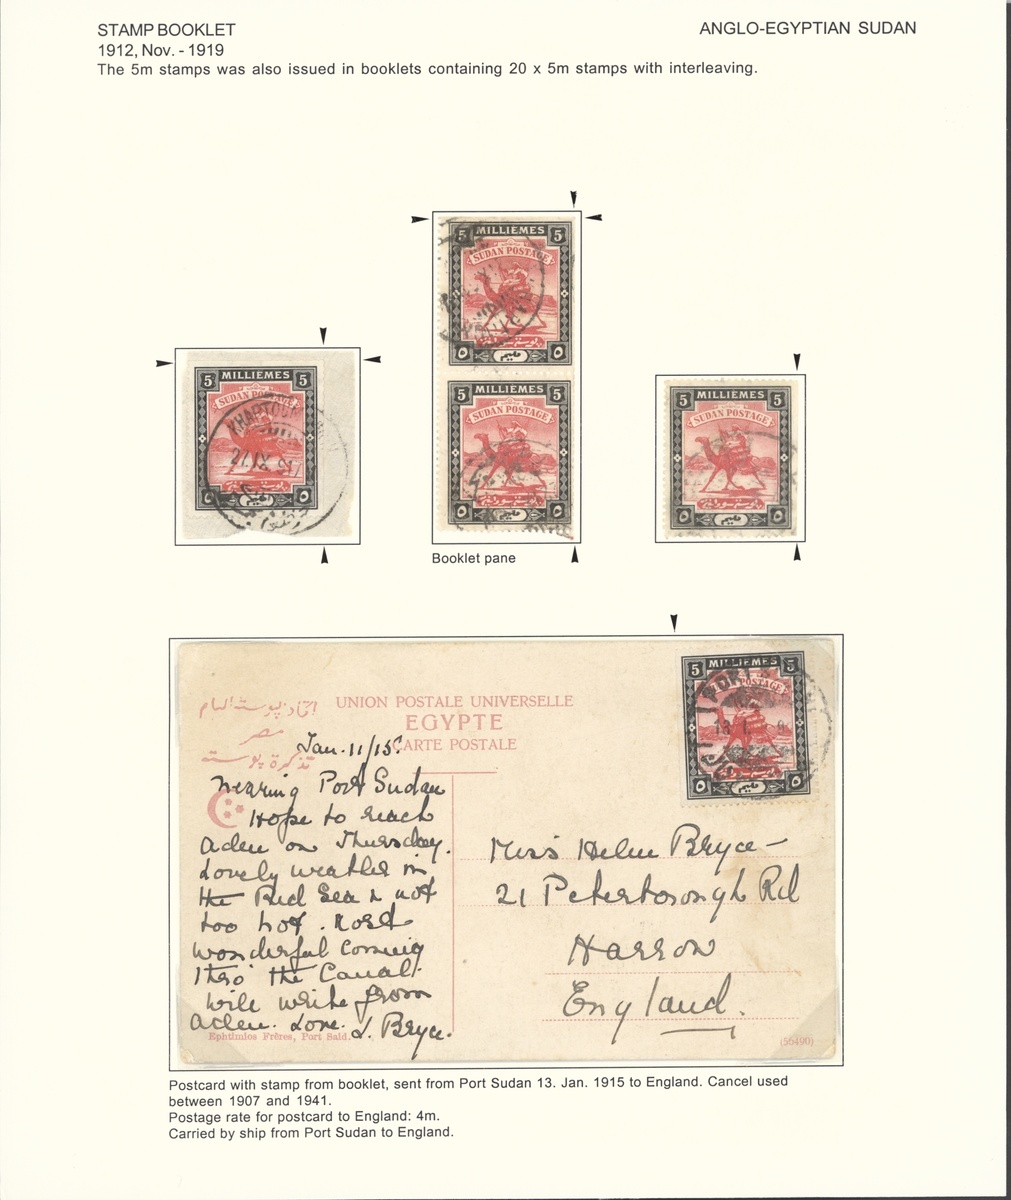 STAMP BOOKLET
ANGLO-EGYPTIAN SUDAN
1912, Nov. - 1919
The 5m stamps was also issued in booklets containing 20 x 5m stamps with interleaving.
5 MILLIEMES 5
SUDAN POSTAGE
٥ مليم ٥
5 MILLIEMES 5
SUDAN POSTAGE
٥ مليم ٥
5 MILLIEMES 5
SUDAN POSTAGE
KHARTOUM
٥ مليم ٥
5 MILLIEMES 5
SUDAN POSTAGE
٥ مليم ٥
Booklet pane
5 MILLIEMES 5
POSTAGE
٥ مليم ٥
UNION POSTALE UNIVERSELLE
EGYPTE
CARTE POSTALE
مصر
تذكرة بوستة
Jan. 11/15
Nearing Port Sudan
Hope to reach
Aden on Thursday.
Lovely weather in
the Red Sea & not
too hot. Most
wonderful coming
thro' the Canal.
Will write from
Aden. Love. L. Bryce.
Miss Helen Bryce –
21 Peterborough Rd
Harrow
England.
Ephtimios Frères, Port Said.
(55490)
Postcard with stamp from booklet, sent from Port Sudan 13. Jan. 1915 to England. Cancel used
between 1907 and 1941.
Postage rate for postcard to England: 4m.
Carried by ship from Port Sudan to England.